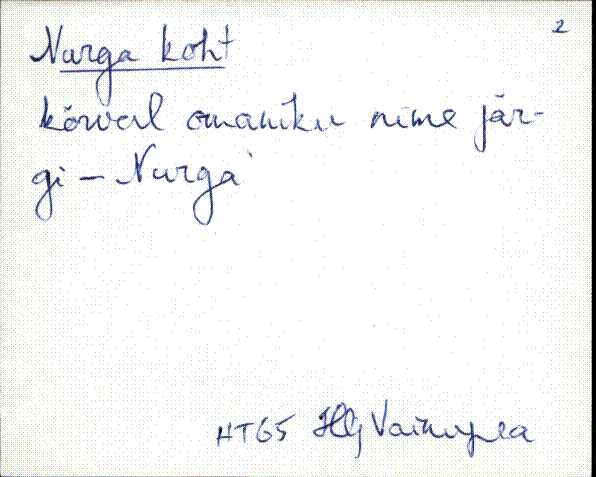 2
Nurga koht
kõrval omaniku nime jär-
gi – Nurga
HT65 Hlj Vainupea